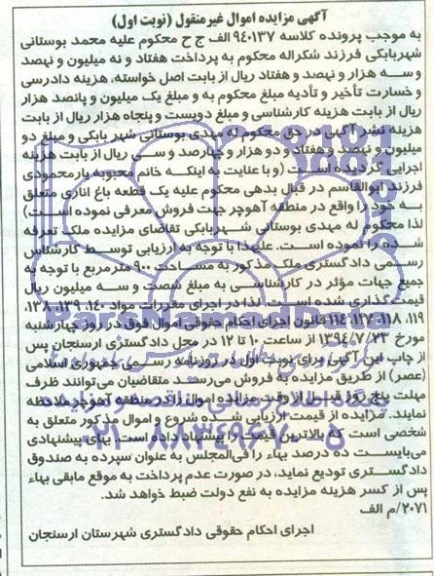 آگهی مزایده اموال غیرمنقول (نوبت اول)
به موجب پرونده کلاسه ۹۴۰۱۳۷ الف ج ح محکوم علیه محمد بوستانی
شهربابکی فرزند شکراله محکوم به پرداخت هفتاد و نه میلیون و نهصد
و سه هزار و نهصد و هفتاد ریال از بابت اصل خواسته، هزینه دادرسی
و خسارت تأخیر و تأدیه مبلغ محکوم به و مبلغ یک میلیون و پانصد هزار
ریال از بابت هزینه کارشناسی و مبلغ دویست و پنجاه هزار ریال از بابت
هزینه نشر آگهی در حق محکوم له مهدی بوستانی شهر بابکی و مبلغ دو
میلیون و نهصد و هفتاد و دو هزار و چهارصد و سی ریال از بابت هزینه
اجرایی گردیده است (و با عنایت به اینکه خانم محبوبه یارمحمودی
فرزند ابوالقاسم در قبال بدهی محکوم علیه یک قطعه باغ اناری متعلق
به خود را واقع در منطقه آهوچر جهت فروش معرفی نموده است)
لذا محکوم له مهدی بوستانی شهربابکی تقاضای مزایده ملک تعرفه
شده را نموده است. علیهذا با توجه به ارزیابی توسط کارشناس
رسمی دادگستری ملک مذکور به مساحت ۹۰۰ مترمربع با توجه به
جمیع جهات مؤثر در کارشناسی به مبلغ شصت و سه میلیون ریال
قیمت گذاری شده است. لذا در اجرای مقررات مواد ۱۴۰، ۱۳۹، ۱۳۸،
۱۱۹، ۱۱۸، ۱۱۷، ۱۱۴ قانون اجرای احکام حقوقی اموال فوق در روز چهارشنبه
مورخ ۱۳۹۴/۷/۲۳ از ساعت ۱۰ تا ۱۲ در محل دادگستری ارسنجان پس
از چاپ این آگهی برای نوبت اول در روزنامه رسمی جمهوری اسلامی
(عصر) از طریق مزایده به فروش می‌رسد متقاضیان می‌توانند ظرف
مهلت پنج روز قبل از وقت مزایده اموال را در منطقه آهوچر ملاحظه
نمایند. مزایده از قیمت ارزیابی شده شروع و اموال مذکور متعلق به
شخصی است که بالاترین بها را پیشنهاد داده است. بهای پیشنهادی
می‌بایست ده درصد بهاء را فی‌المجلس به عنوان سپرده به صندوق
دادگستری تودیع نماید، در صورت عدم پرداخت به موقع مابقی بهاء
پس از کسر هزینه مزایده به نفع دولت ضبط خواهد شد.
۲۰۷۱/م الف
اجرای احکام حقوقی دادگستری شهرستان ارسنجان
ParsNamadData
۰۲۱-۸۸۳۴۹۶۷۰-۵